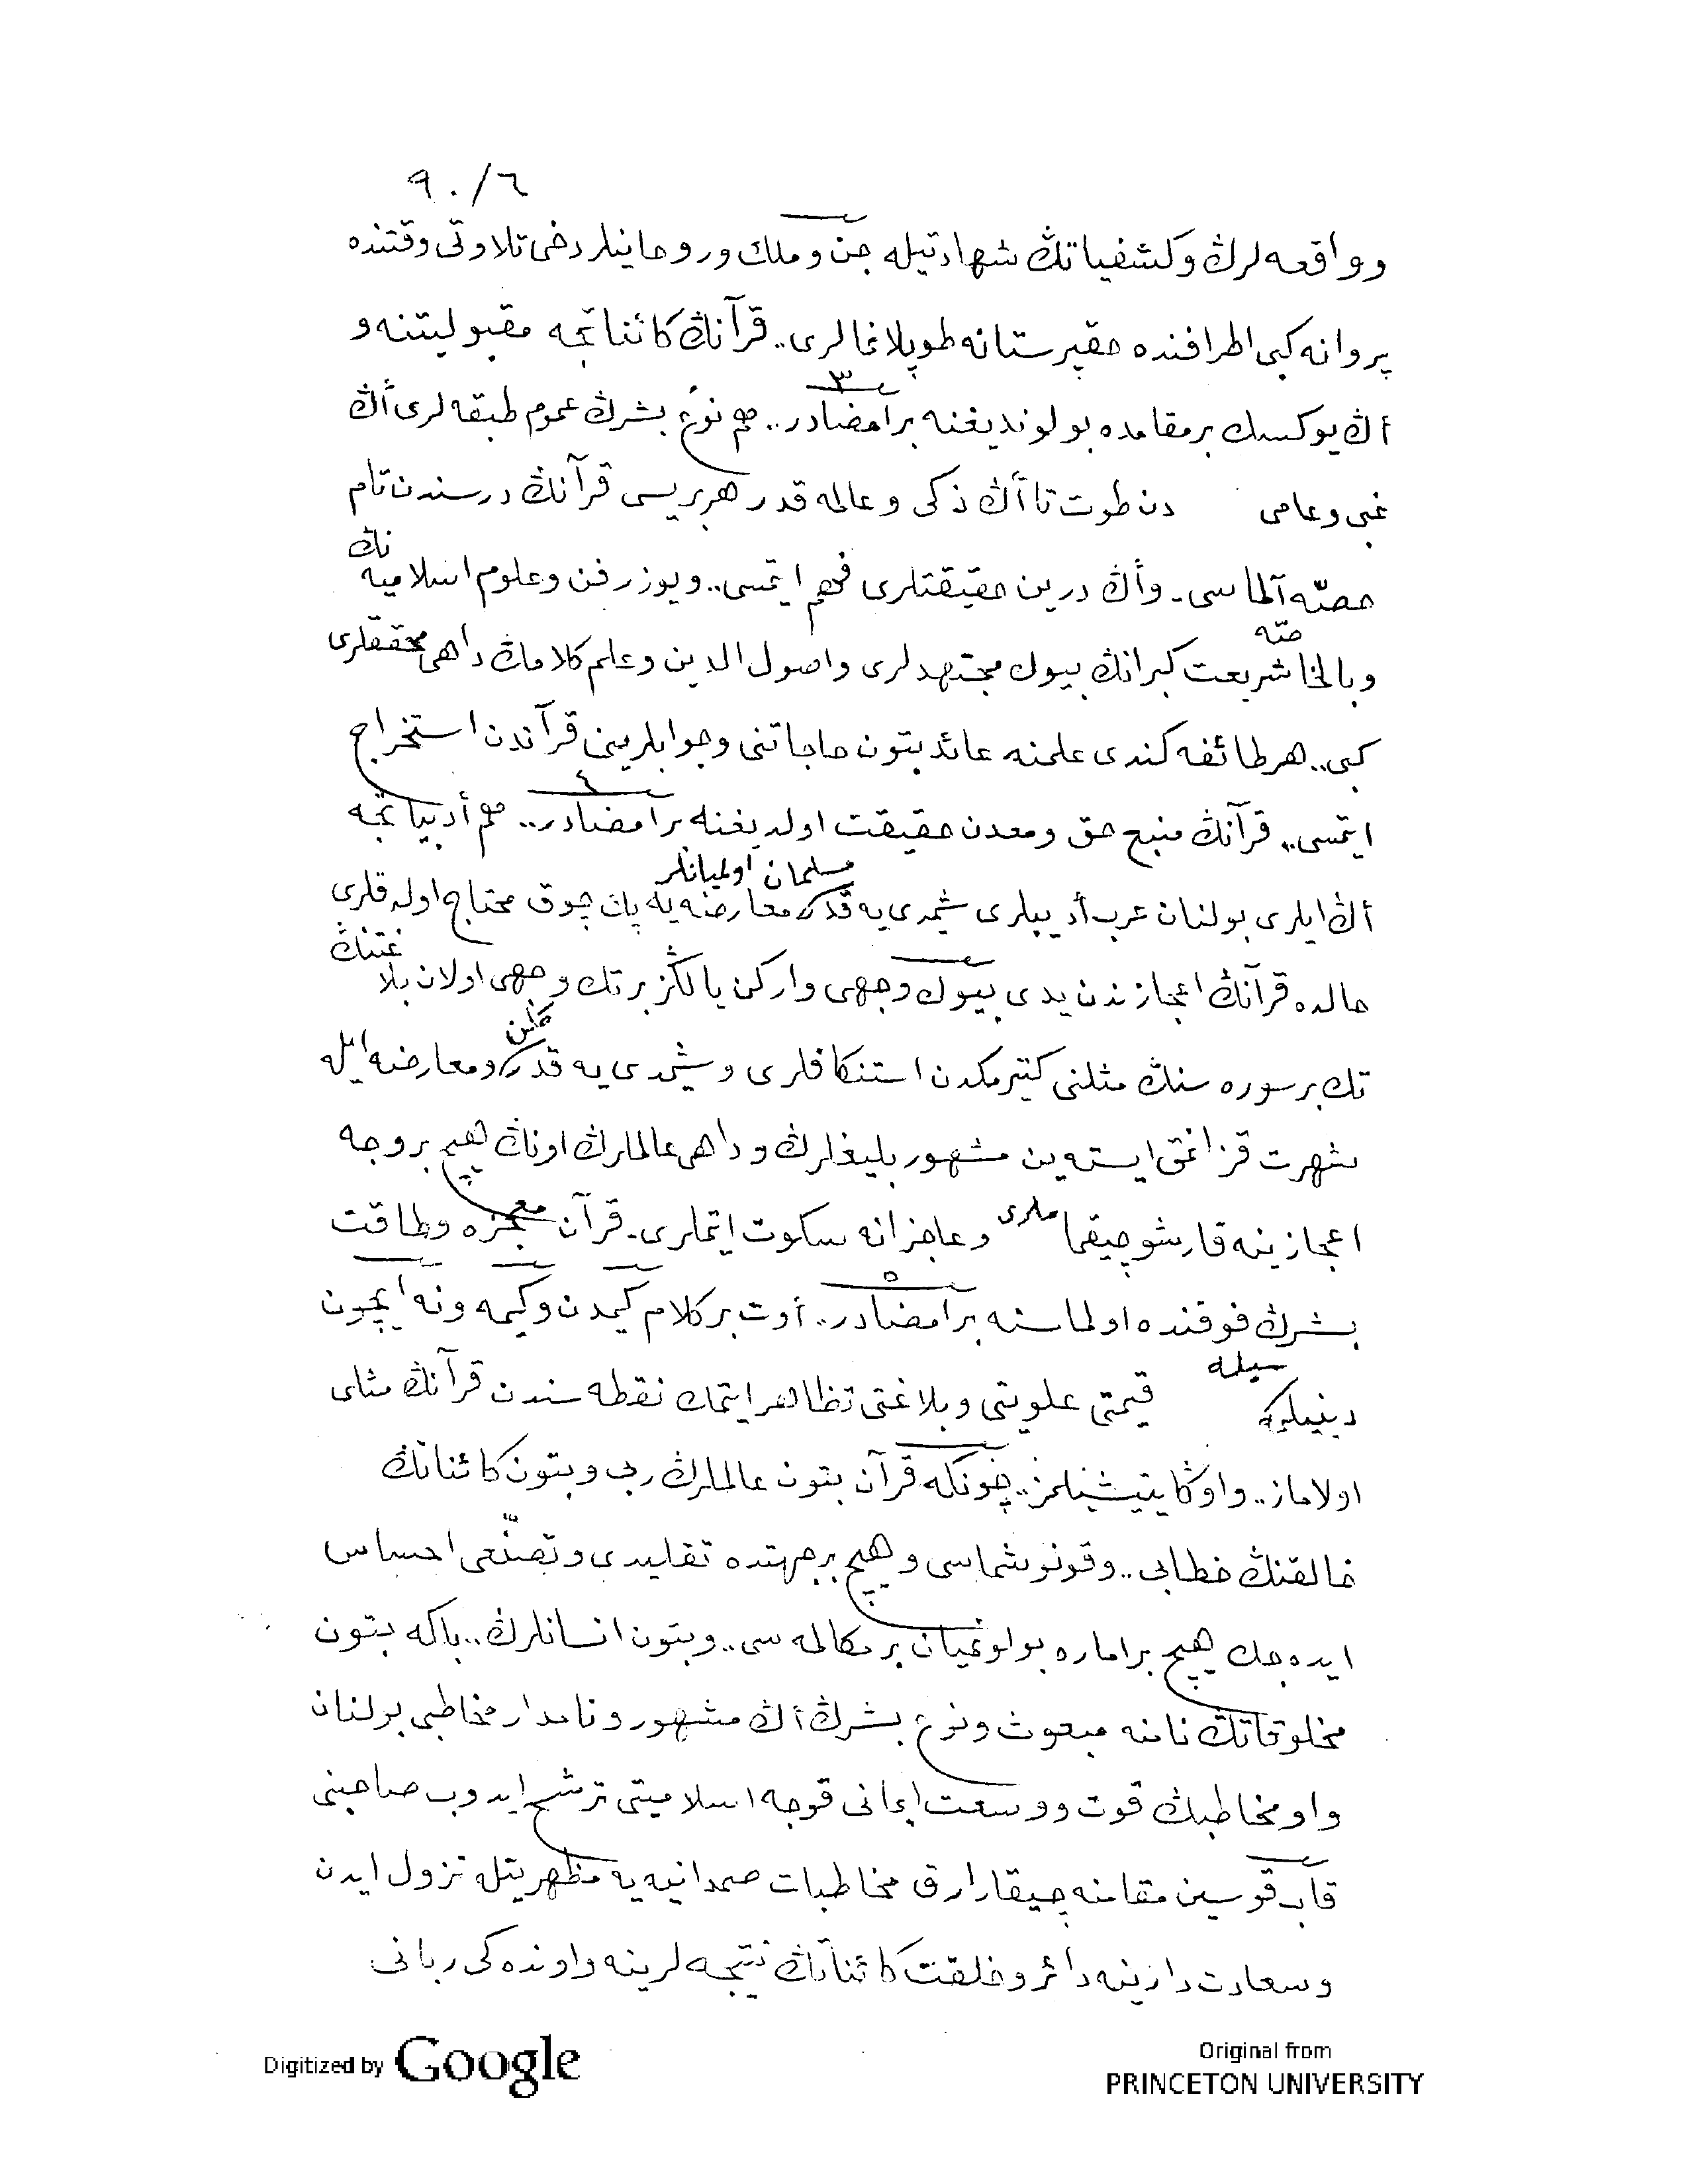 ٩٠/٦
و واقعه لرڭ و كشفياتڭ شهادتيله جن و ملك و روحانيلر دخى تلاوتى وقتنده
پروانه كبى اطرافنده حقپرستانه طوپلانمالرى.. قرآنڭ كائناتجه مقبوليتنه و
أڭ يوكسك بر مقامده بولونديغنه بر امضادر.. ٣ هم نوع بشرڭ عموم طبقه لرى أڭ
غبى و عامى دن طوت تا أڭ ذكى و عالمه قدر هر بريسى قرآنڭ درسندن تام
حصّه آلماسى. و أڭ درين حقيقتلرى فهم ايتمسى.. و يوزر فن و علوم اسلاميه نڭ
و بالخاصّه شريعت كبرانڭ بيوك مجتهدلرى و اصول الدين و علم كلامڭ داهى محققلرى
كبى.. هر طائفه كندى علمنه عائد بتون حاجاتنى و جوابلرينى قرآندن استخراج
ايتمسى.. قرآنڭ منبع حق و معدن حقيقت اولديغنه بر امضادر.. ٤ هم أدبياتجه
أڭ ايلرى بولنان عرب أديبلرى شمدى يه قدر مسلمان اولميانلر معارضه يه پك چوق محتاج اولدقلرى
حالده قرآنڭ اعجازندن يدى بيوك وجهى وار كن يالڭز بر تك وجهى اولان بلاغتنڭ
تك بر سوره سنڭ مثلنى كتيرمكدن استنكافلرى و شيمدى يه قدر كلن و معارضه ايله
شهرت قزانمق ايسته ين مشهور بليغلرڭ و داهى عالملرڭ اونڭ هيچ بر وجه
اعجازينه قارشو چيقماملرى و عاجزانه سكوت ايتملرى. قرآن معجزه و طاقت
بشرڭ فوقنده اولماسنه بر امضادر.. ٥ أوت بر كلام كيمدن و كيمه و نه ايچون
دينيلمه سيله قيمتى علويتى و بلاغتى تظاهر ايتمك نقطه سندن قرآنڭ مثلى
اولاماز.. و اوڭا يتيشيلمز.. چونكه قرآن بتون عالملرڭ ربى و بتون كائناتڭ
خالقنڭ خطابى.. و قونوشماسى و هيچ بر جهتده تقليدى و تصنّعى احساس
ايده جك هيچ بر اماره بولونميان بر مكالمه سى.. و بتون انسانلرڭ.. بلكه بتون
مخلوقاتڭ نامنه مبعوث و نوع بشرڭ أڭ مشهور و نامدار مخاطبى بولنان
و او مخاطبڭ قوت و وسعت ايمانى قوجه اسلاميتى ترشح ايدوب صاحبنى
قاب قوسين مقامنه چيقارارق مخاطبات صمدانيه يه مظهريتله نزول ايدن
و سعادت دارينه دائر و خلقت كائناتڭ نتيجه لرينه و اونده كى ربانى
Digitized by Google
Original from
PRINCETON UNIVERSITY